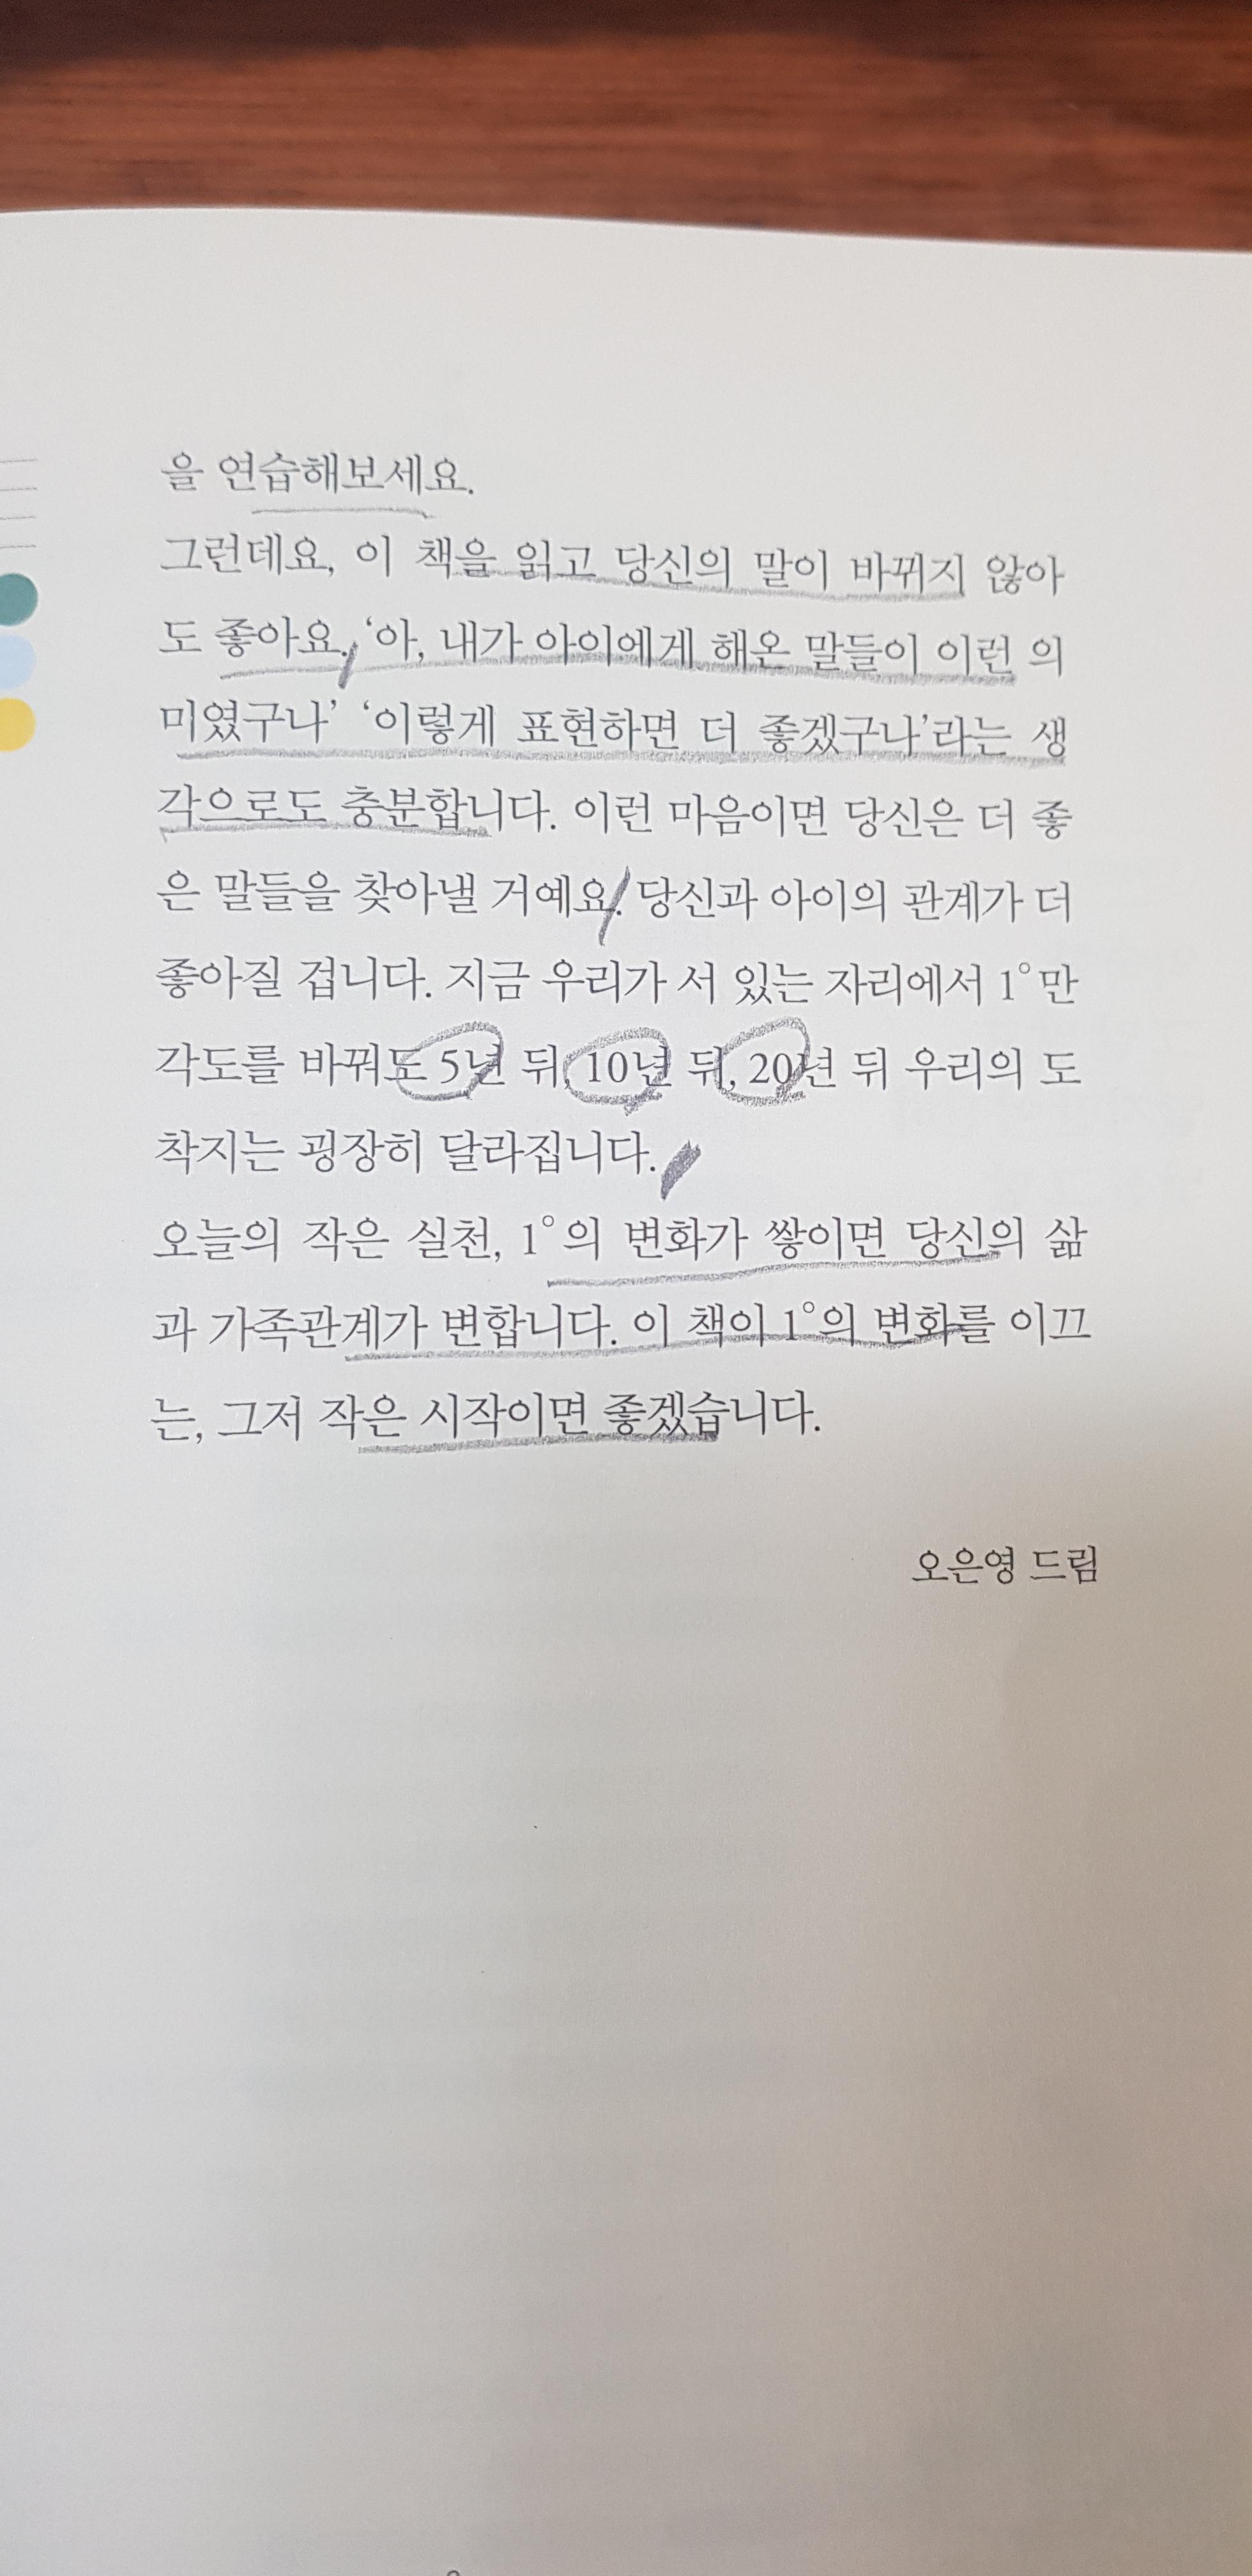 을 연습해보세요.
그런데요, 이 책을 읽고 당신의 말이 바뀌지 않아
도 좋아요. ‘아, 내가 아이에게 해온 말들이 이런 의
미였구나’ ‘이렇게 표현하면 더 좋겠구나’라는 생
각으로도 충분합니다. 이런 마음이면 당신은 더 좋
은 말들을 찾아낼 거예요. 당신과 아이의 관계가 더
좋아질 겁니다. 지금 우리가 서 있는 자리에서 1°만
각도를 바꿔도 5년 뒤, 10년 뒤, 20년 뒤 우리의 도
착지는 굉장히 달라집니다.
오늘의 작은 실천, 1°의 변화가 쌓이면 당신의 삶
과 가족관계가 변합니다. 이 책이 1°의 변화를 이끄
는, 그저 작은 시작이면 좋겠습니다.
오은영 드림